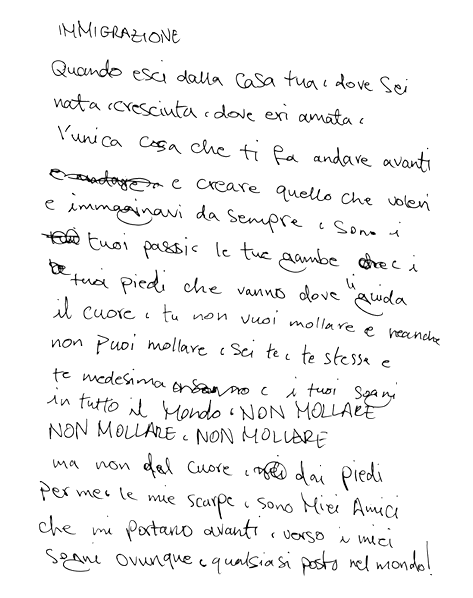 IMMIGRAZIONE
Quando esci dalla casa tua, dove sei
nata, cresciuta, dove eri amata,
l'unica cosa che ti fa andare avanti
e creare quello che volevi
e immaginavi da sempre, sono i
tuoi passi, le tue gambe e i
tuoi piedi che vanno dove li guida
il cuore, tu non vuoi mollare e neanche
non puoi mollare, sei te, te stessa e
te medesima e i tuoi sogni
in tutto il Mondo, NON MOLLARE
NON MOLLARE, NON MOLLARE
ma non dal cuore, dai piedi
Per me, le mie scarpe, sono Miei Amici
che mi portano avanti, verso i miei
sogni ovunque, qualsiasi posto nel mondo!